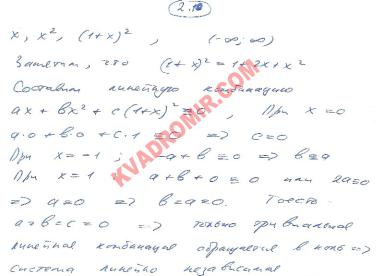 2.10
x, x², (1+x)², (-∞; ∞)
Заметим, что (1+x)² = 1+2x+x²
Составим линейную комбинацию
ax + bx² + c(1+x)² ≡ 0, При x = 0
a·0 + b·0 + c·1 = 0 => c = 0
При x = -1; -a+b = 0 => b = a
При x = 1 a+b+0 = 0 или 2a=0
=> a = 0 => b=a=0. То есть
a=b=c=0 => только тривиальная
линейная комбинация обращается в ноль =>
система линейно независимая
KVADROMIR.COM